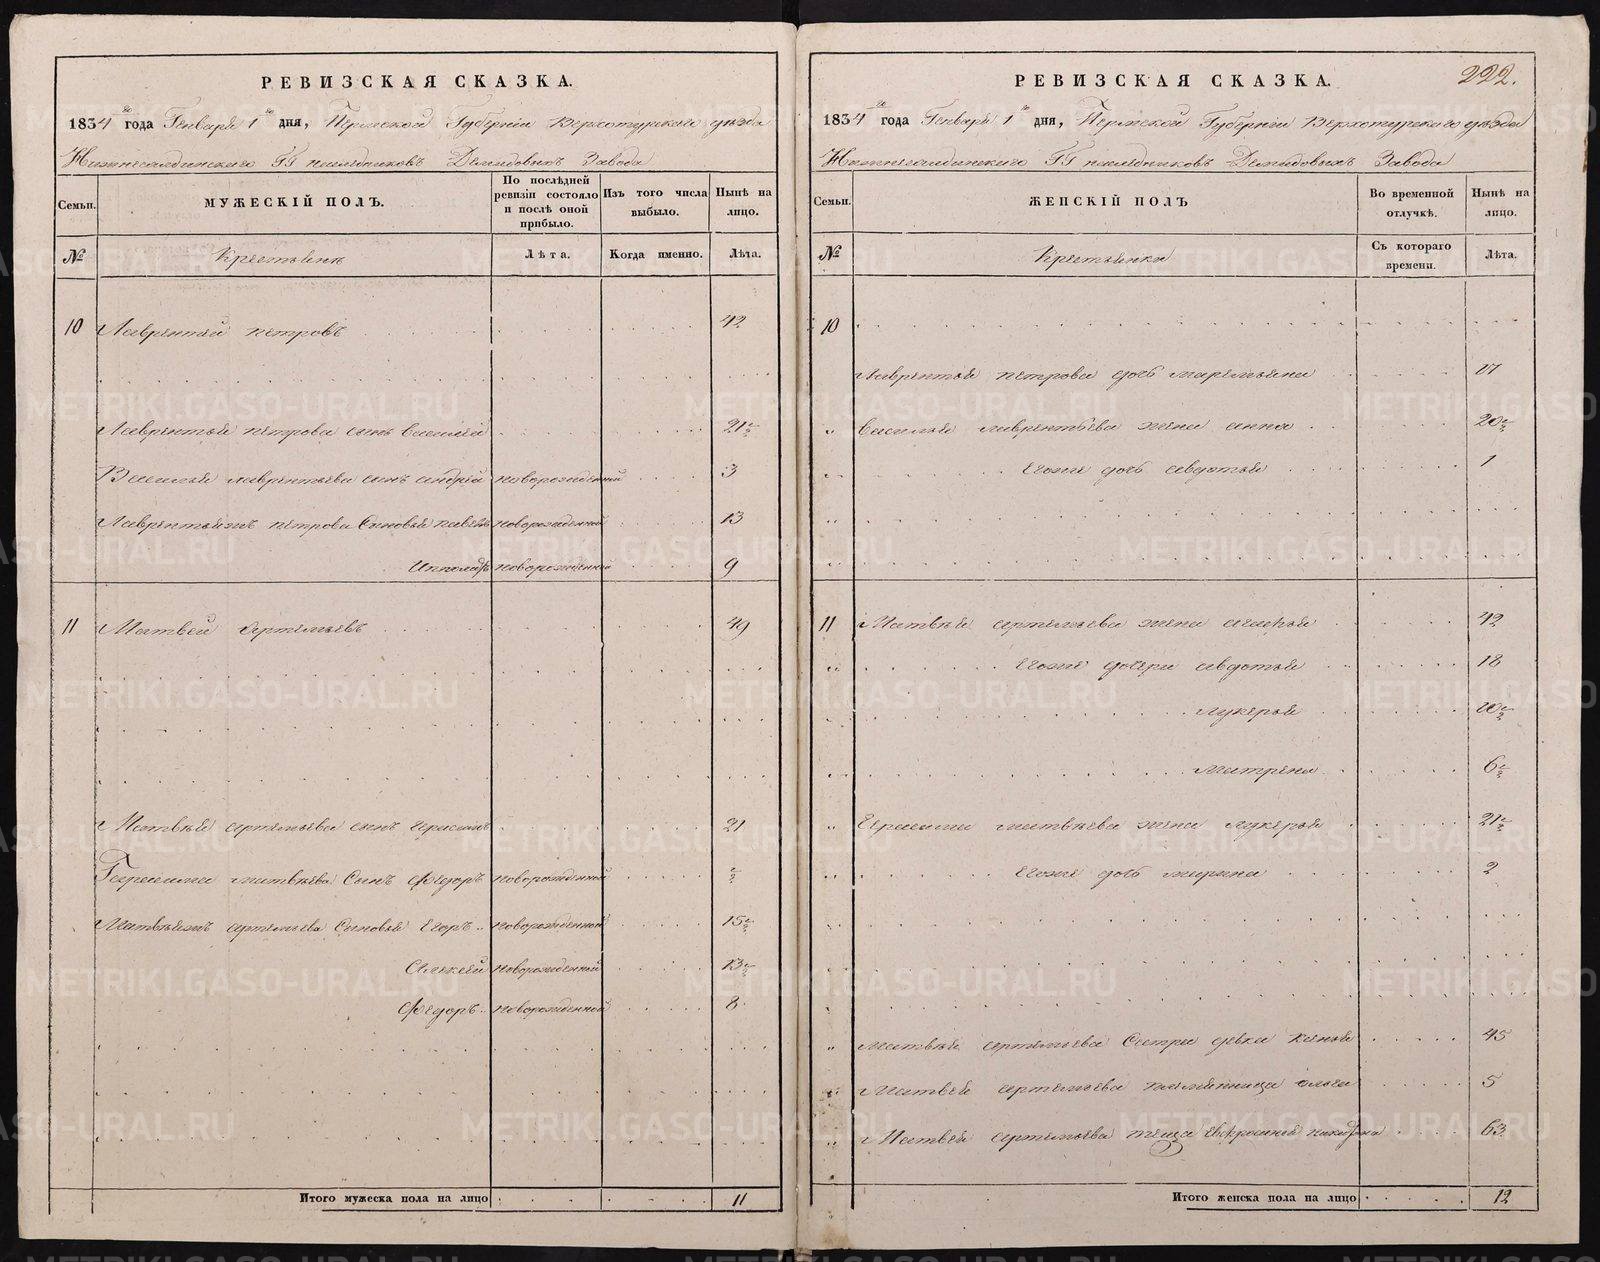 РЕВИЗСКАЯ СКАЗКА.
1834го года Генваря 1го дня, Пермской Губернiи Верхотурскаго уѣзда
Нижнесалдинскаго ГГ наслѣдниковъ Демидовыхъ Завода
Семьи. МУЖЕСКIЙ ПОЛЪ. По послѣдней ревизiи состояло и послѣ оной прибыло. Изъ того числа выбыло. Нынѣ на лицо.
№ Крестьяне Лѣта. Когда именно. Лѣта.
10 Лаврентей петровъ 42
Лаврентья петрова сынъ василей 21½
Василья лаврентьева сынъ андрей новорожденной 3
Лаврентьяжъ петрова Сыновья павелъ новорожденной 13
новорожденной 9
11 Матвей артемьевъ 49
Матвѣя артемьева сынъ герасимъ 21
Герасима матвѣева Сынъ Федоръ новорожденной ½
Матвѣяжъ артемьева Сыновья Егоръ новорожденной 15½
Алексей новорожденной 13½
Федоръ новорожденной 8
Итого мужеска пола на лицо 11
РЕВИЗСКАЯ СКАЗКА. 222.
1834го года Генваря 1го дня, Пермской Губернiи Верхотурскаго уѣзда
Нижнесалдинскаго ГГ наслѣдниковъ Демидовыхъ Завода
Семьи. ЖЕНСКIЙ ПОЛЪ Во временной отлучкѣ. Нынѣ на лицо.
№ Крестьянки Съ котораго времени. Лѣта.
10
Лаврентья петрова дочь маремьяна 17
" василья лаврентьева жена анна 20½
Егоже дочь авдотья 1
11 Матвѣя артемьева жена 42
Егоже дочери авдотья 18
лукерья 10½
матрена 6½
" Герасима матвѣева жена лукерья 21½
Егоже дочь марина 2
" матвѣя артемьева Сестра девка 45
" Матвея артемьева племянница ольга 5
" Матвея артемьева теща 63
Итого женска пола на лицо 12
METRIKI.GASO-URAL.RU